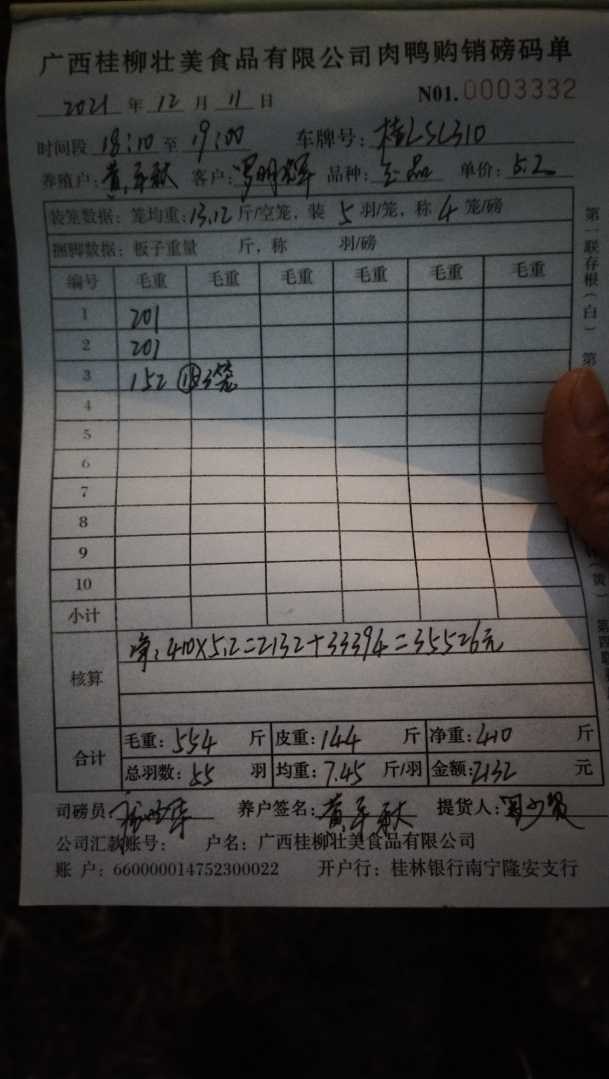 广西桂柳壮美食品有限公司肉鸭购销磅码单
2021 年 12 月 11 日 N01.0003332
时间段 18:10 至 19:00 车牌号: 桂LSL310
养殖户: 黄 秋 客户: 罗明辉 品种: 正品 单价: 5.2
装笼数据: 笼均重: 13.12 斤/空笼, 装 5 羽/笼, 称 4 笼/磅
捆脚数据: 板子重量 斤, 称 羽/磅
编号 毛重 毛重 毛重 毛重 毛重 毛重
1 201
2 201
3 152 3笼
4
5
6
7
8
9
10
小计
核算 410×5.2=2132+33394=35526元
合计 毛重: 554 斤 皮重: 144 斤 净重: 410 斤
总羽数: 55 羽 均重: 7.45 斤/羽 金额: 2132 元
司磅员: 养户签名: 黄 秋 提货人:
公司汇款账号: 户名: 广西桂柳壮美食品有限公司
账 户: 660000014752300022 开户行: 桂林银行南宁隆安支行
第一联存根(白) 第
(黄)